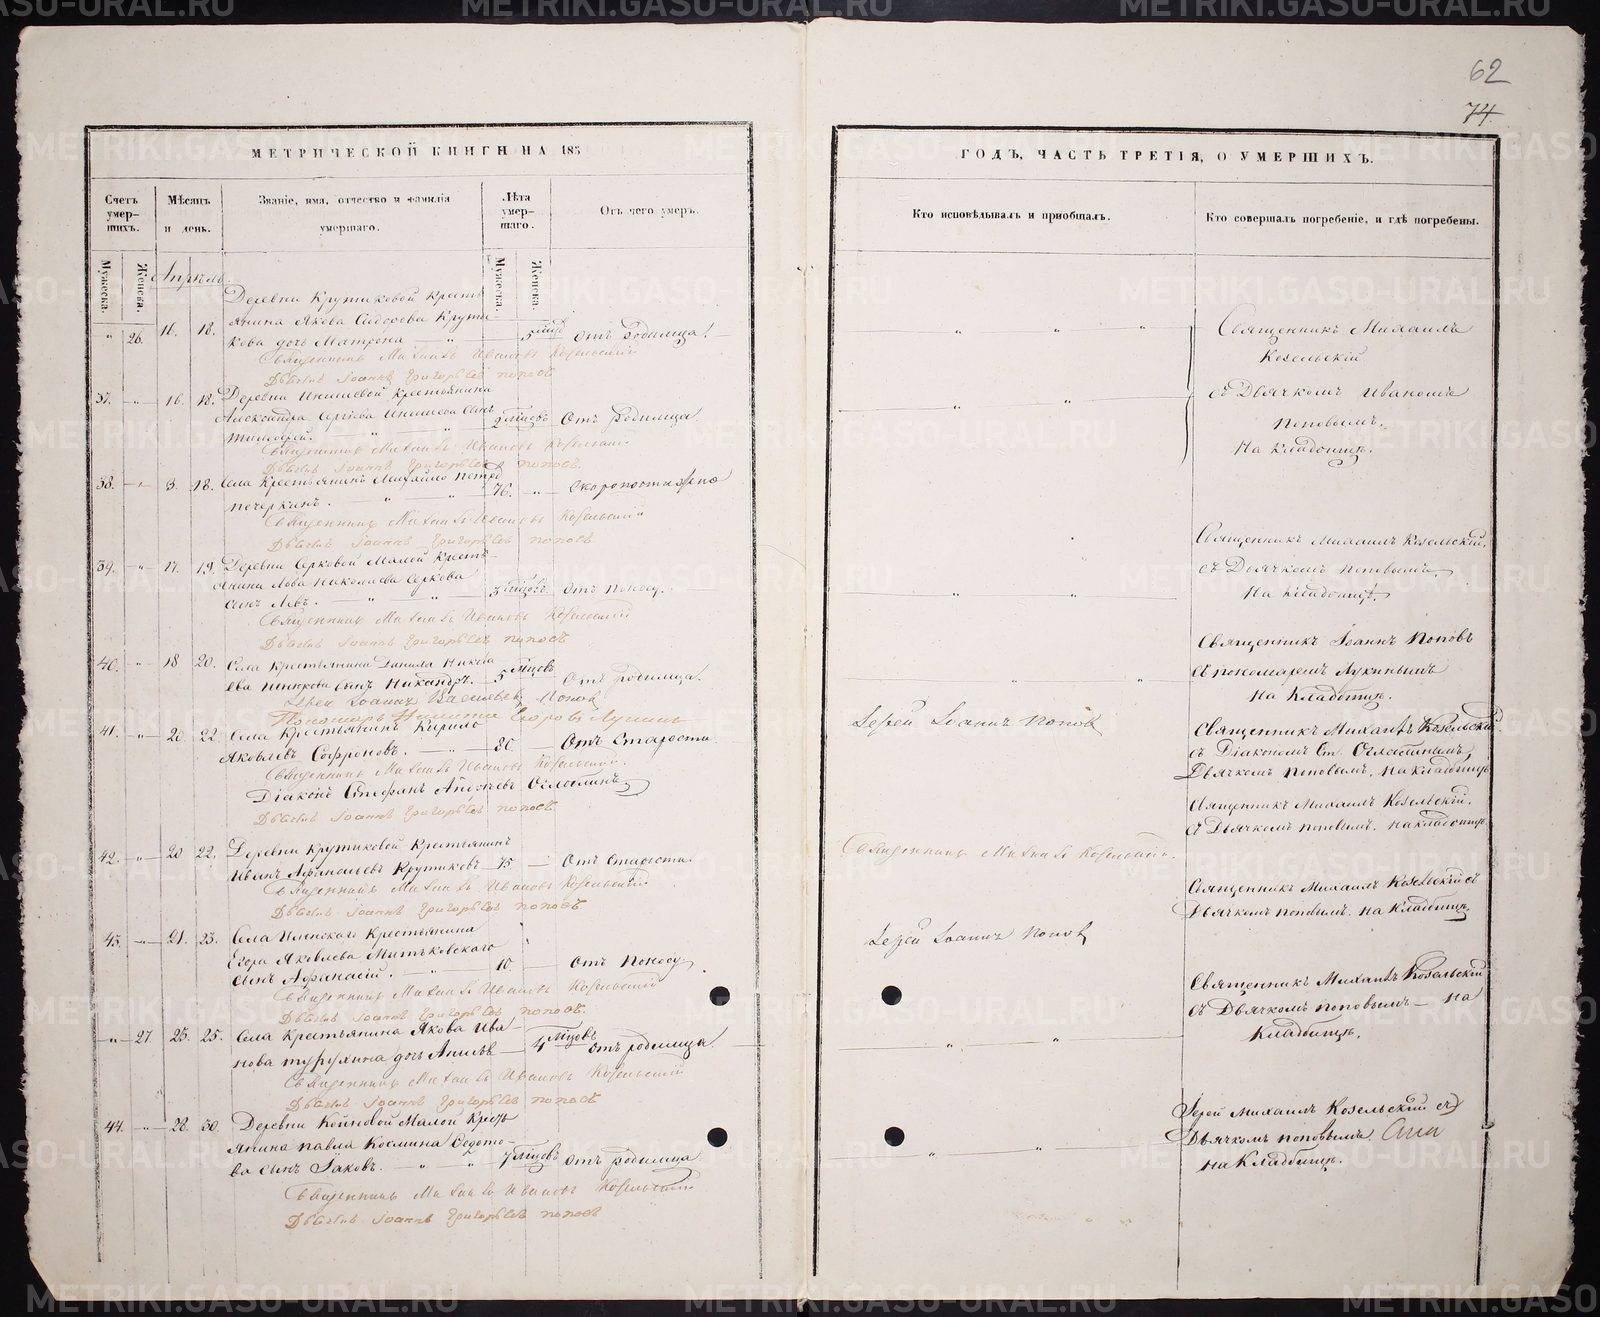 62
74
МЕТРИЧЕСКОЙ КНИГИ НА 185
ГОДЪ, ЧАСТЬ ТРЕТІЯ, О УМЕРШИХЪ.
Счетъ умер-шихъ.
Мѣсяцъ и день.
Званіе, имя, отчество и фамилія умершаго.
Лѣта умер-шаго.
Отъ чего умеръ.
Кто исповѣдывалъ и пріобщалъ.
Кто совершалъ погребеніе, и гдѣ погребены.
Мужеска.
Женска.
Мужеска.
Женска.
Апрѣль
Деревни Крутиковой Кресть
янина Якова Сидорова Крути
26. 16. 18. кова дочь Матрона 5 мцъ отъ Родимца
Священникъ Михаилъ Ивановъ Козельскій
Дьячекъ Іоаннъ Григорьевъ Поповъ
Священникъ Михаилъ
Козельскій
съ Дьячкомъ Иваномъ
Поповымъ.
На Кладбищѣ.
37. 16. 18. Деревни Крестьянина
Александра Сынъ
Тимофей. 2 мцовъ Отъ Родимца
Священникъ Михаилъ Ивановъ Козельскій
Дьячекъ Іоаннъ Григорьевъ Поповъ.
38. 3. 18. Села Крестьянинъ Михайло Петровъ
Печеркинъ. 76. Скоропостижно
Священникъ Михаилъ Ивановъ Козельскій
Дьячекъ Іоаннъ Григорьевъ Поповъ
Священникъ Михаилъ Козельскій,
съ Дьячкомъ Поповымъ,
На Кладбищѣ.
39. 17. 19. Деревни Серковой Малой Кресть-
янина Льва Николаева Серкова
сынъ Левъ. 3 мцовъ. Отъ Поносу.
Священникъ Михаилъ Ивановъ Козельскій
Дьячекъ Іоаннъ Григорьевъ Поповъ
Священникъ Іоаннъ Поповъ
съ пономаремъ Лукинымъ
На Кладбищѣ.
40. 18 20. Села Крестьянина Данила
сынъ Никандръ. 5 мцовъ Отъ родимца.
Іерей Іоаннъ Васильевъ Поповъ
Пономарь Никита Егоровъ Лукинъ
41. 20 22. Села Крестьянинъ Кирило
Яковлевъ Софроновъ. 80 Отъ Старости
Священникъ Михаилъ Ивановъ Козельскій.
Діаконъ Стефанъ Андреевъ Оглоблинъ
Дьячекъ Іоаннъ Григорьевъ Поповъ
Іерей Іоаннъ Поповъ
Священникъ Михаилъ Козельскій
съ Діакономъ Ст. Оглоблинымъ,
Дьячкомъ Поповымъ, на кладбищѣ
Священникъ Михаилъ Козельскій.
съ Дьячкомъ Поповымъ. на кладбищѣ
42. 20 22. Деревни Крутиковой Крестьянинъ
Иванъ Афанасьевъ Крутиковъ 75 Отъ старости.
Священникъ Михаилъ Ивановъ Козельскій
Дьячекъ Іоаннъ Григорьевъ Поповъ
Священникъ Михаилъ Козельскій.
Священникъ Михаилъ Козельскій съ
Дьячкомъ Поповымъ. На Кладбищѣ,
43. 21. 23. Села Иленскаго Крестьянина
Егора Яковлева Митьковскаго
сынъ Афанасій. 10. Отъ Поносу
Священникъ Михаилъ Ивановъ Козельскій
Дьячекъ Іоаннъ Григорьевъ Поповъ.
Іерей Іоаннъ Поповъ
Священникъ Михаилъ Козельскій
съ Дьячкомъ Поповымъ На
Кладбищѣ.
27. 23. 25. Села Крестьянина Якова Ива-
нова Турухина дочь 4 мцовъ Отъ родимца
Священникъ Михаилъ Ивановъ Козельскій
Дьячекъ Іоаннъ Григорьевъ Поповъ
44. 28. 30. Деревни Кейновой Малой Кресть
янина Павла Космина Федото-
ва сынъ Іаковъ. 7 мцовъ Отъ родимца
Священникъ Михаилъ Ивановъ Козельскій
Дьячекъ Іоаннъ Григорьевъ Поповъ
Іерей Михаилъ Козельскій съ
Дьячкомъ Поповымъ.
на Кладбищѣ.
METRIKI.GASO-URAL.RU